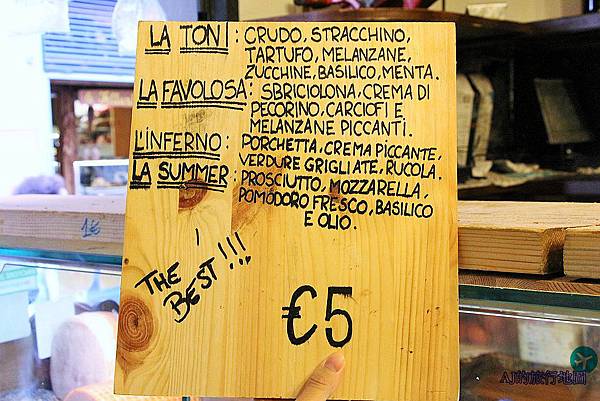 LA TONI: CRUDO, STRACCHINO,
TARTUFO, MELANZANE,
ZUCCHINE, BASILICO, MENTA.
LA FAVOLOSA: SBRICIOLONA, CREMA DI
PECORINO, CARCIOFI E
MELANZANE PICCANTI.
L'INFERNO: PORCHETTA, CREMA PICCANTE,
VERDURE GRIGLIATE, RUCOLA.
LA SUMMER: PROSCIUTTO, MOZZARELLA,
POMODORO FRESCO, BASILICO
E OLIO.
THE
BEST!!!
€5
1€
AJ的旅行地圖